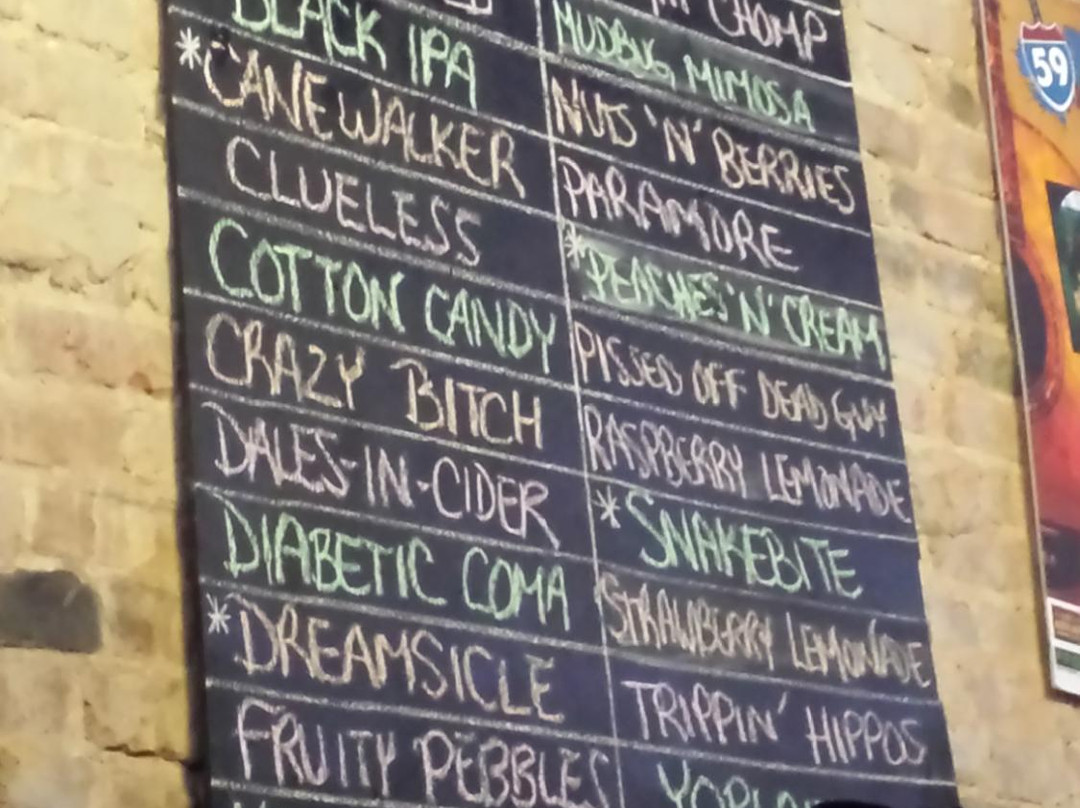 BLACK IPA
*CANEWALKER
CLUELESS
COTTON CANDY
CRAZY BITCH
DALES-IN-CIDER
DIABETIC COMA
*DREAMSICLE
FRUITY PEBBLES
CHOMP
MUDBUG MIMOSA
NUTS 'N' BERRIES
PARAMORE
*PEACHES 'N' CREAM
PISSED OFF DEAD GUY
RASPBERRY LEMONADE
*SNAKEBITE
STRAWBERRY LEMONADE
TRIPPIN' HIPPOS
59